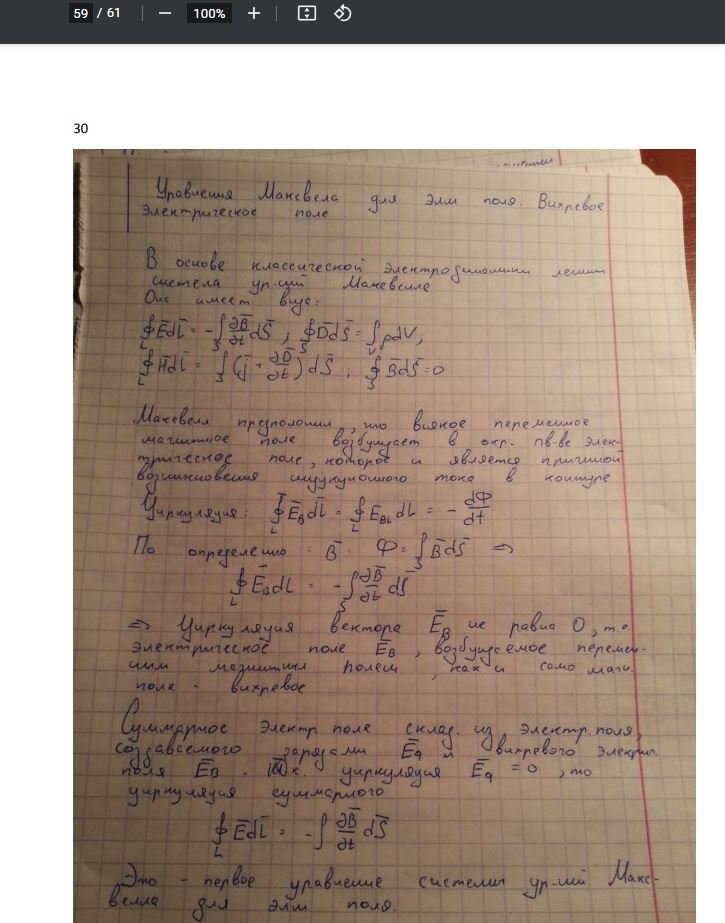 59 / 61 − 100% +
30
Уравнения Максвела для элм поля. Вихревое
электрическое поле
В основе классической электродинамики лежит
система ур-ний Максвелла
Она имеет вид:
∮_L E̅dl̅ = -∫_S ∂B̅/∂t dS̅ , ∮_S D̅dS̅ = ∫_V ρdV,
∮_L H̅dl̅ = ∫_S (j̅ + ∂D̅/∂t) dS̅ , ∮_S B̅dS̅ = 0
Максвелл предположил, что всякое переменное
магнитное поле возбуждает в окр. пр-ве элек-
трическое поле, которое и является причиной
возникновения индукционного тока в контуре
Циркуляция: ∮_L E̅_B dl̅ = ∮_L E_Bl dl = - dФ/dt
По определению : B̅ Ф = ∫_S B̅dS̅ ⇒
∮_L E̅_B dl = -∫_S ∂B̅/∂t dS̅
⇒ Циркуляция вектора E̅_B не равна 0, т.е.
электрическое поле E̅_B, возбуждаемое перемен-
ным магнитным полем, как и само магн.
поле - вихревое
Суммарное электр поле склад. из электр. поля,
создаваемого зарядами E̅_q и вихревого электрич.
поля E̅_B . к. циркуляция E̅_q = 0 , то
циркуляция суммарного
∮_L E̅dl̅ = -∫ ∂B̅/∂t dS̅
Это - первое уравнение системы ур-ний Макс-
велла для элм поля.